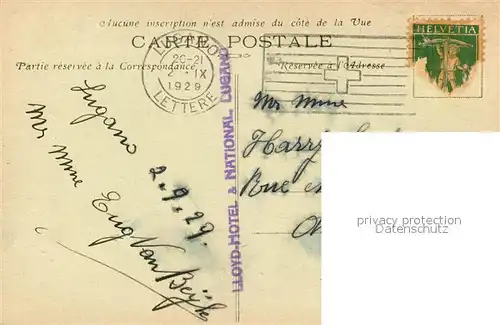 Aucune inscription n'est admise du côté de la Vue
CARTE POSTALE
Partie réservée à la Correspondance
Réservée à l'Adresse
LUGANO
20-21
2.IX
1929
LETTERE
HELVETIA
LLOYD-HOTEL & NATIONAL, LUGANO
Lugano 2.9.29.
Mr Mme Eug Van
Mr Mme
Harry
Rue
privacy protection
Veröffentlichungsschutz